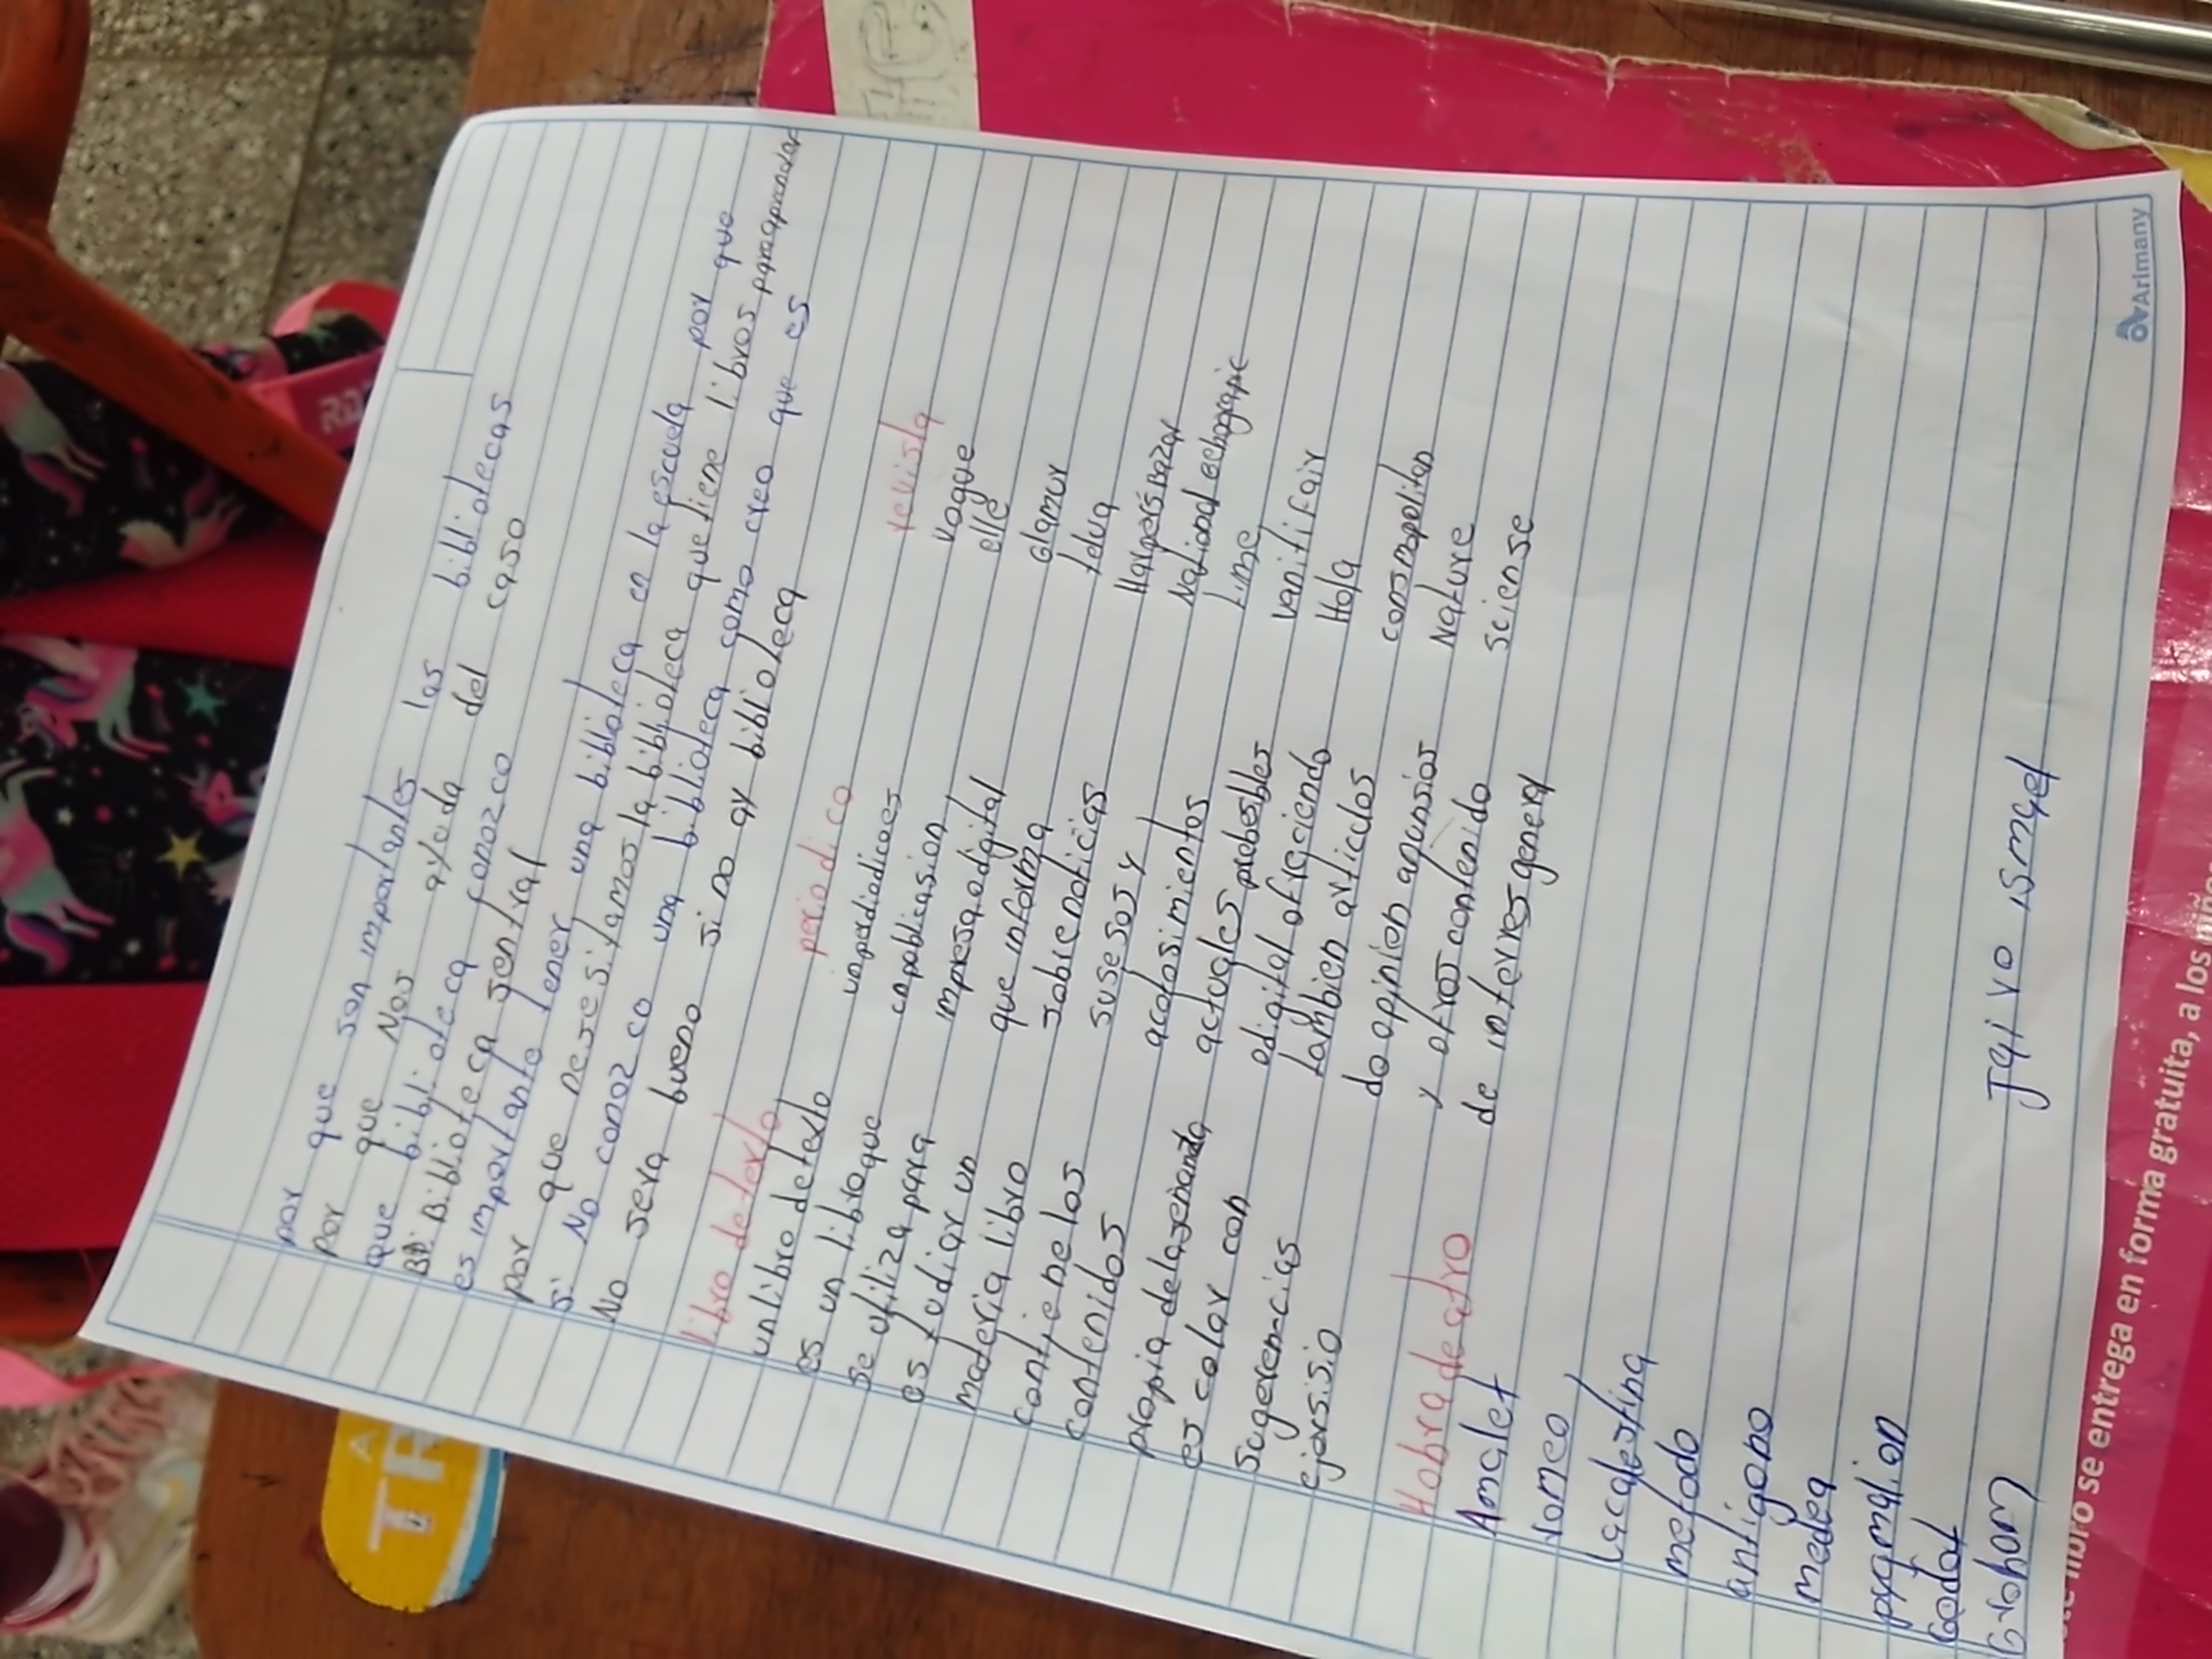 por que son importantes las bibliotecas
por que Nos ayuda del caso
que biblioteca conozco
Biblioteca sentral
es importante tener una biblioteca en la escuela por que
por que nesesitamos la biblioteca que tiene libros para aprender
si No conozco una biblioteca como creo que es
No sera bueno si no ay biblioteca
libro de texto
un libro de texto
es un libro que
se utiliza para
es tudiar un
materia libro
contiene los
contenidos
propia de la
es colar con
sugerencias
ejersisio
periodico
un perdiadicoes
en pablicasion
impresa odigital
que informa
sobre noticias
susesos y
acatosimientos
actuales
odigital ofraciendo
tambien articulos
do opinion anunsios
y otros contenido
de interres general
revista
Vogue
elle
Glamur
telva
Harpers Bazar
National
time
vanitifair
Hola
consmopolitan
Nature
sciense
Hobra de atro
Amalet
romeo
Lacalestina
metodo
antigono
medea
pygmalion
Godot
Jairo ismael
Arimany
TR
libro se entrega en forma gratuita, a los niñ